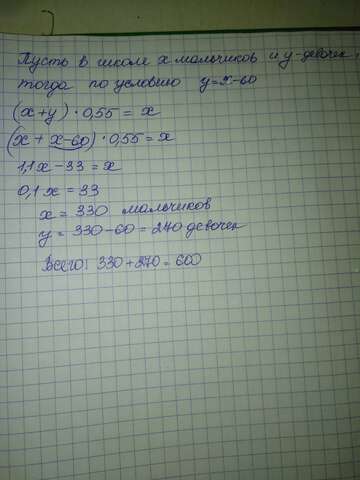 Пусть в школе x мальчиков и y-девочек,
тогда по условию y=x-60
(x+y)·0,55=x
(x+x-60)·0,55=x
1,1x-33=x
0,1x=33
x=330 мальчиков
y=330-60=270 девочек
Всего: 330+270=600